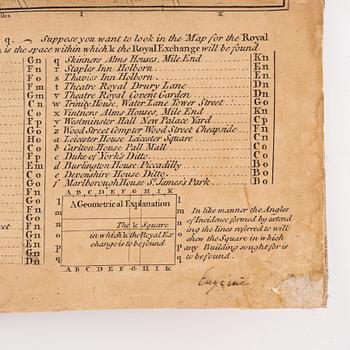 Miles I K
q. Suppose you want to look in the Map for the Royal
is the space within which k the Royal Exchange will be found
Gn q Skinners Alms Houses, Mile End Kn
Fn r Staples Inn Holborn En
Fo s Thavies Inn Holborn. En
Fm t Theatre Royal Drury Lane Dn
v Theatre Royal Covent Garden Dn
Cn w Trinity House, Water Lane Tower Street Go
Co x Vintners Alms Houses Mile End Kn
Fp y Westminster Hall New Palace Yard Cp
Go z Wood Street Compter Wood Street Cheapside Fn
Ho a Leicester House Leicester Square Cn
Co b Carlton House Pall Mall Co
Fp c Duke of York's Ditto. Co
Em d Burlington House Piccadilly Bo
Co e Devonshire House Ditto. Bo
Fn f Marlborough House St. James's Park Bo
A B C D E F G H I K
A Geometrical Explanation
The k Square
in which k the Royal Ex
change is to be found
l m n o p q
l m n o p q
A B C D E F G H I K
In like manner the Angles
of Incidence formed by extend
ing the lines referred to will
shew the Square in which
any Building sought for is
to be found.